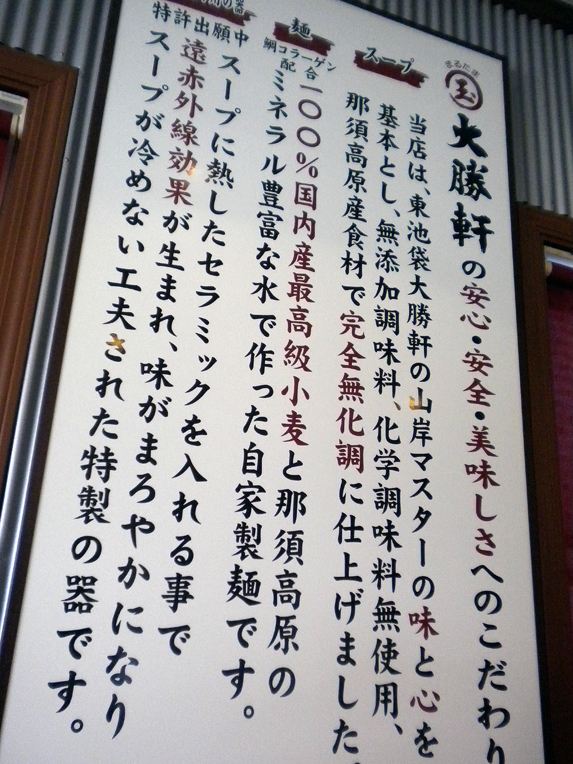 まるたま
玉 大勝軒の安心・安全・美味しさへのこだわり
スープ
当店は、東池袋大勝軒の山岸マスターの味と心を
基本とし、無添加調味料、化学調味料無使用、
那須高原産食材で完全無化調に仕上げました。
麺
鯛コラーゲン
配合
一〇〇%国内産最高級小麦と那須高原の
ミネラル豊富な水で作った自家製麺です。
特許出願中
スープに熱したセラミックを入れる事で
遠赤外線効果が生まれ、味がまろやかになり
スープが冷めない工夫された特製の器です。